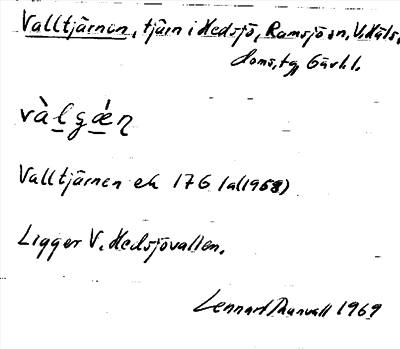 Valltjärnen, tjärn i Hedsjö, Ramsjö sn, V. Häls.
Doms. tg Gävhl.
vàlgǽn
Valltjärnen ek 176 (a(1958)
Ligger V. Hedsjövallen.
Lennart Thunvall 1969